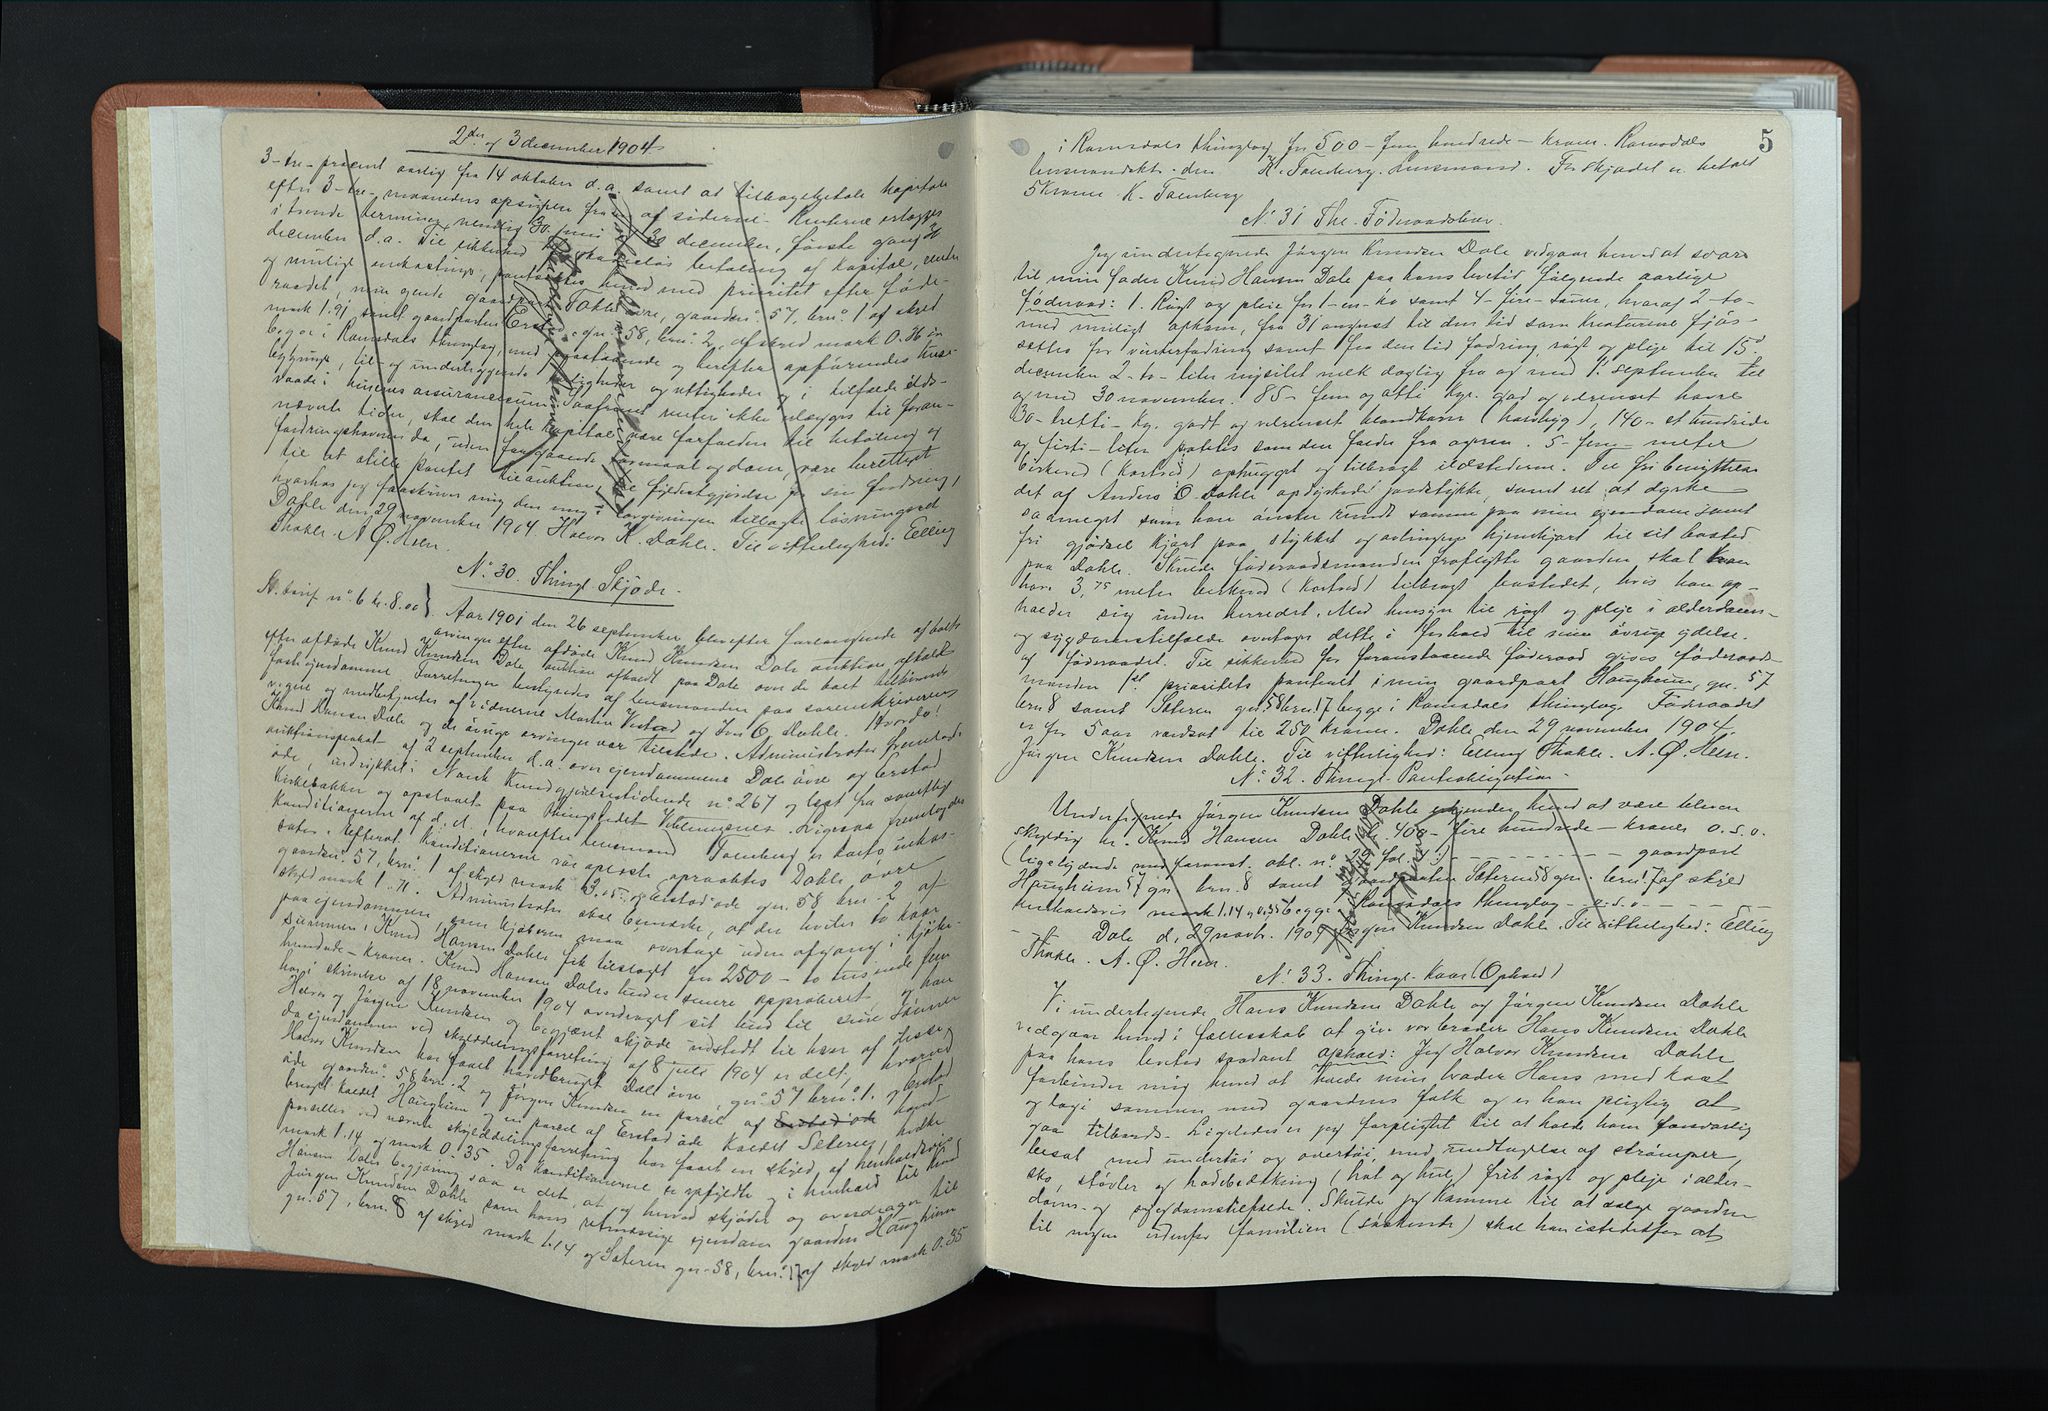 2den og 3 december 1904
3 - tre - procent aarlig fra 14 oktober d.a. samt at tilbagebetale kapitalen
efter 3 - tre - maaneders opsigelse fra en af siderne. Renterne erlægges
i tvende terminer nemlig 30 juni og 30 december, første gang 30
december d.a. Til sikkerhed for skadesløs betaling af kapital, renter
og muligt omkostninger, pantsættes herved med prioritet efter føde-
raadet, min eiende gaardpart Dahle øvre, gaardsn: 57, brn: 1 af skyld
mark 1.91, samt gaardparten Erstad gn: 58, brn: 2, af skyld mark 0.36 in
begge i Romsdals thinglag, med paastaaende og herefter opførendes huse
bygninger, til- og underliggende herligheder og rettigheder og i tilfælde ilds-
vaade i husenes assurancesum. Saafremt renter ikke erlægges til foran-
nævnte tider, skal den hele kapital være forfalden til betaling og
fordringshaveren da, uden foregaaende søgsmaal og dom, være berettiget
til at stille pantet til auktion til fyldestgjørelse for sin fordring,
hvorhos jeg fraskriver mig den mig i lovgivningen tillagte løsningsret
Dahle den 29 november 1904. Halvor K. Dahle. Til vitterlighed: Elling
Thokle. A. Ø. Heen.
No: 30. Thingl. Skjøde.
St. tarif no: 6 kr. 8.00} Aar 1901 den 26 september blev efter forlangende af boets
arvinger efter afdøde Knud Knudsen Dale auktion afholdt
efter afdøde Knud Knudsen Dale auktion afholdt paa Dale over de boet tilhørende
faste eiendomme. Forretningen bestyredes af lensmanden paa sorenskriverens
vegne og medbetjentes af vidnerne Martin Vestad og Iver O. Dahle. Hvorda!
Knud Hansen Dale og de øvrige arvinger var tilstede. Administrator fremlagde
auktionsplakat af 2 september d.a. over eiendommene Dale øvre og Erstad
øde, indrykket i Norsk Kundgjørelsestidende no: 267 og læst fra samtlig
kirkebakker og opslaaet paa thingstedet Veblungsnes. Ligesaa fremlagdes
Konditionerne af d.d. i hvorefter lensmand Tønberg er boets inkas-
sator. Efterat Konditionerne var oplæste opraabtes Dahle øvre
gaardsn: 57, brn: 1 af skyld mark 3.05 og Erstad øde gn. 58 brn. 2 af
skyldmark 1.71. Administrator skal bemærke, at der hviler to kaar
paa eiendommen, som kjøberen maa overtage uden afgang i kjøbe-
summen. Knud Hansen Dahle fik tilslaget for 2500 - to tusinde fem
hundrede - kroner. Knud Hansen Dales bud er senere approberet, og han
har i skrivelse af 18 november 1904 overdraget sit bud til sine sønner
Halvor og Jørgen Knudsen og begjæret skjøde udstedt til hver af disse
da eiendommen ved skylddelingsforretning af 8 juli 1904 er delt, hvorved
Halvor Knudsen har faaet hovedbruget Dale øvre, gn: 57 brn: 1. og Erstad
øde gaardsn: 58 brn: 2 og Jørgen Knudsen en parcel af Erstad øde hoved-
bruget kaldet Haugheim og en parcel af Erstad øde kaldet Sæteren, hvilke
parceller ved nævnte skylddelingsforretning har faaet en skyld, af henholdsvis
mark 1.14 og mark 0.35. Da Konditionerne er opfyldte og i henhold til Knud
Hansen Dales begjæring, saa er det, at jeg herved skjøder og overdrager til
Jørgen Knudsen Dahle som hans retmæssige eiendom gaarden Haugheim
gn. 57, brn. 8 af skyld mark 1.14 og Sæteren gn. 58, brn: 17 af skyld mark 0.35
5
i Romsdals thinglag for 500 - fem hundrede - kroner. Romsdals
lensmandskt. den K. Tønberg. Lensmand. For skjødet er betalt
5 kroner K. Tønberg
No: 31 Thl. Føderaadsbrev.
Jeg undertegnede Jørgen Knudsen Dale vedgaar herved at svare
til min fader Knud Hansen Dale paa hans levetid følgende aarlige
føderaad: 1. Røgt og pleie for 1 - en - ko samt 4 - fire - sauer, hvoraf 2 - to -
med muligt opkom, fra 31 august til den tid som kreaturene fjøs-
settes for vinterfodring samt fra den tid fodring, røgt og pleje til 15de
december 2 - to - liter nysilet melk daglig fra og med 1. september til
og med 30 november. 85 - fem og otti kgr. god og velrenset havre
30 - tretti - kg. godt og velrenset blandkorn (havbyg), 140 - et hundrede
og firti - liter potetes som den falder fra ageren. 5 - fem - meter
birkeved (kortved) ophugget og tilbragt ildstederne. Til fri benyttelse
det af Anders O. Dahle opdyrkede jordstykke, samt ret at dyrke
saameget som han ønsker rundt samme paa min eiendom samt
fri gjødsel kjørt paa stykket og avlingen hjemkjørt til sit bosted
paa Dahle. Skulde føderaadsmanden fraflytte gaarden skal han
have 3,75 meter birkeved (kortved) tilbragt bostedet, hvis han op-
holder sig inden herredet. Med hensyn til røgt og pleje i alderdoms-
og sygdomstilfælde overtages dette i forhold til sine øvrige ydelse
af føderaadet. Til sikkerhed for foranstaaende føderaad gives føderaads-
manden 1ste prioritets panteret i min gaardpart Haugheim, gn. 57
brn. 8 samt Sæteren gn: 58 brn. 17 begge i Romsdals thinglag. Føderaadet
er for 5 aar værdsat til 250 kroner. Dahle den 29 november 1904.
Jørgen Knudsen Dahle. Til vitterlighed: Elling Thokle. A. Ø. Heen.
No: 32. Thingl. Pantobligation.
Undertegnede Jørgen Knudsen Dahle erkjender herved at være bleven
skyldig hr. Knud Hansen Dahle kr. 400 - fire hundrede - kroner o.s.v.
(ligelydende med foranst. obl. no: 29 fol. 4) - - - - gaardpart
Haugheim 57 gn brn. 8 samt gaardparten Sæteren 58 gn. brn: 17 af skyld
henholdsvis mark 1.14 og 0.35 begge i Romsdals thinglag - o.s.v. - - - -
- Dale d. 29 novbr. 1904 Jørgen Knudsen Dahle. Til vitterlighed: Elling
Thokle. A. Ø. Heen.
No: 33. Thingl. Kaar (Ophold)
Vi undertegnede Hans Knudsen Dahle og Jørgen Knudsen Dahle
vedgaar herved i fællesskab at give vor broder Hans Knudsen Dahle
paa hans levetid saadant ophold: Jeg Halvor Knudsen Dahle
forbinder mig herved at holde min broder Hans med kost
og logi sammen med gaardens folk og er han pligtig at
gaa tilbords. Ligeledes er jeg forpligtet til at holde ham forsvarlig
beset med undertøi og overtøi, med indtagelse af strømper,
sko, støvler og hodebedækning (hat og hue) frit røgt og pleje i alder-
doms- og sygdomstilfælde. Skulde jeg komme til at sælge gaarden
til nogen udenfor familien (søskende) skal han istedetfor at